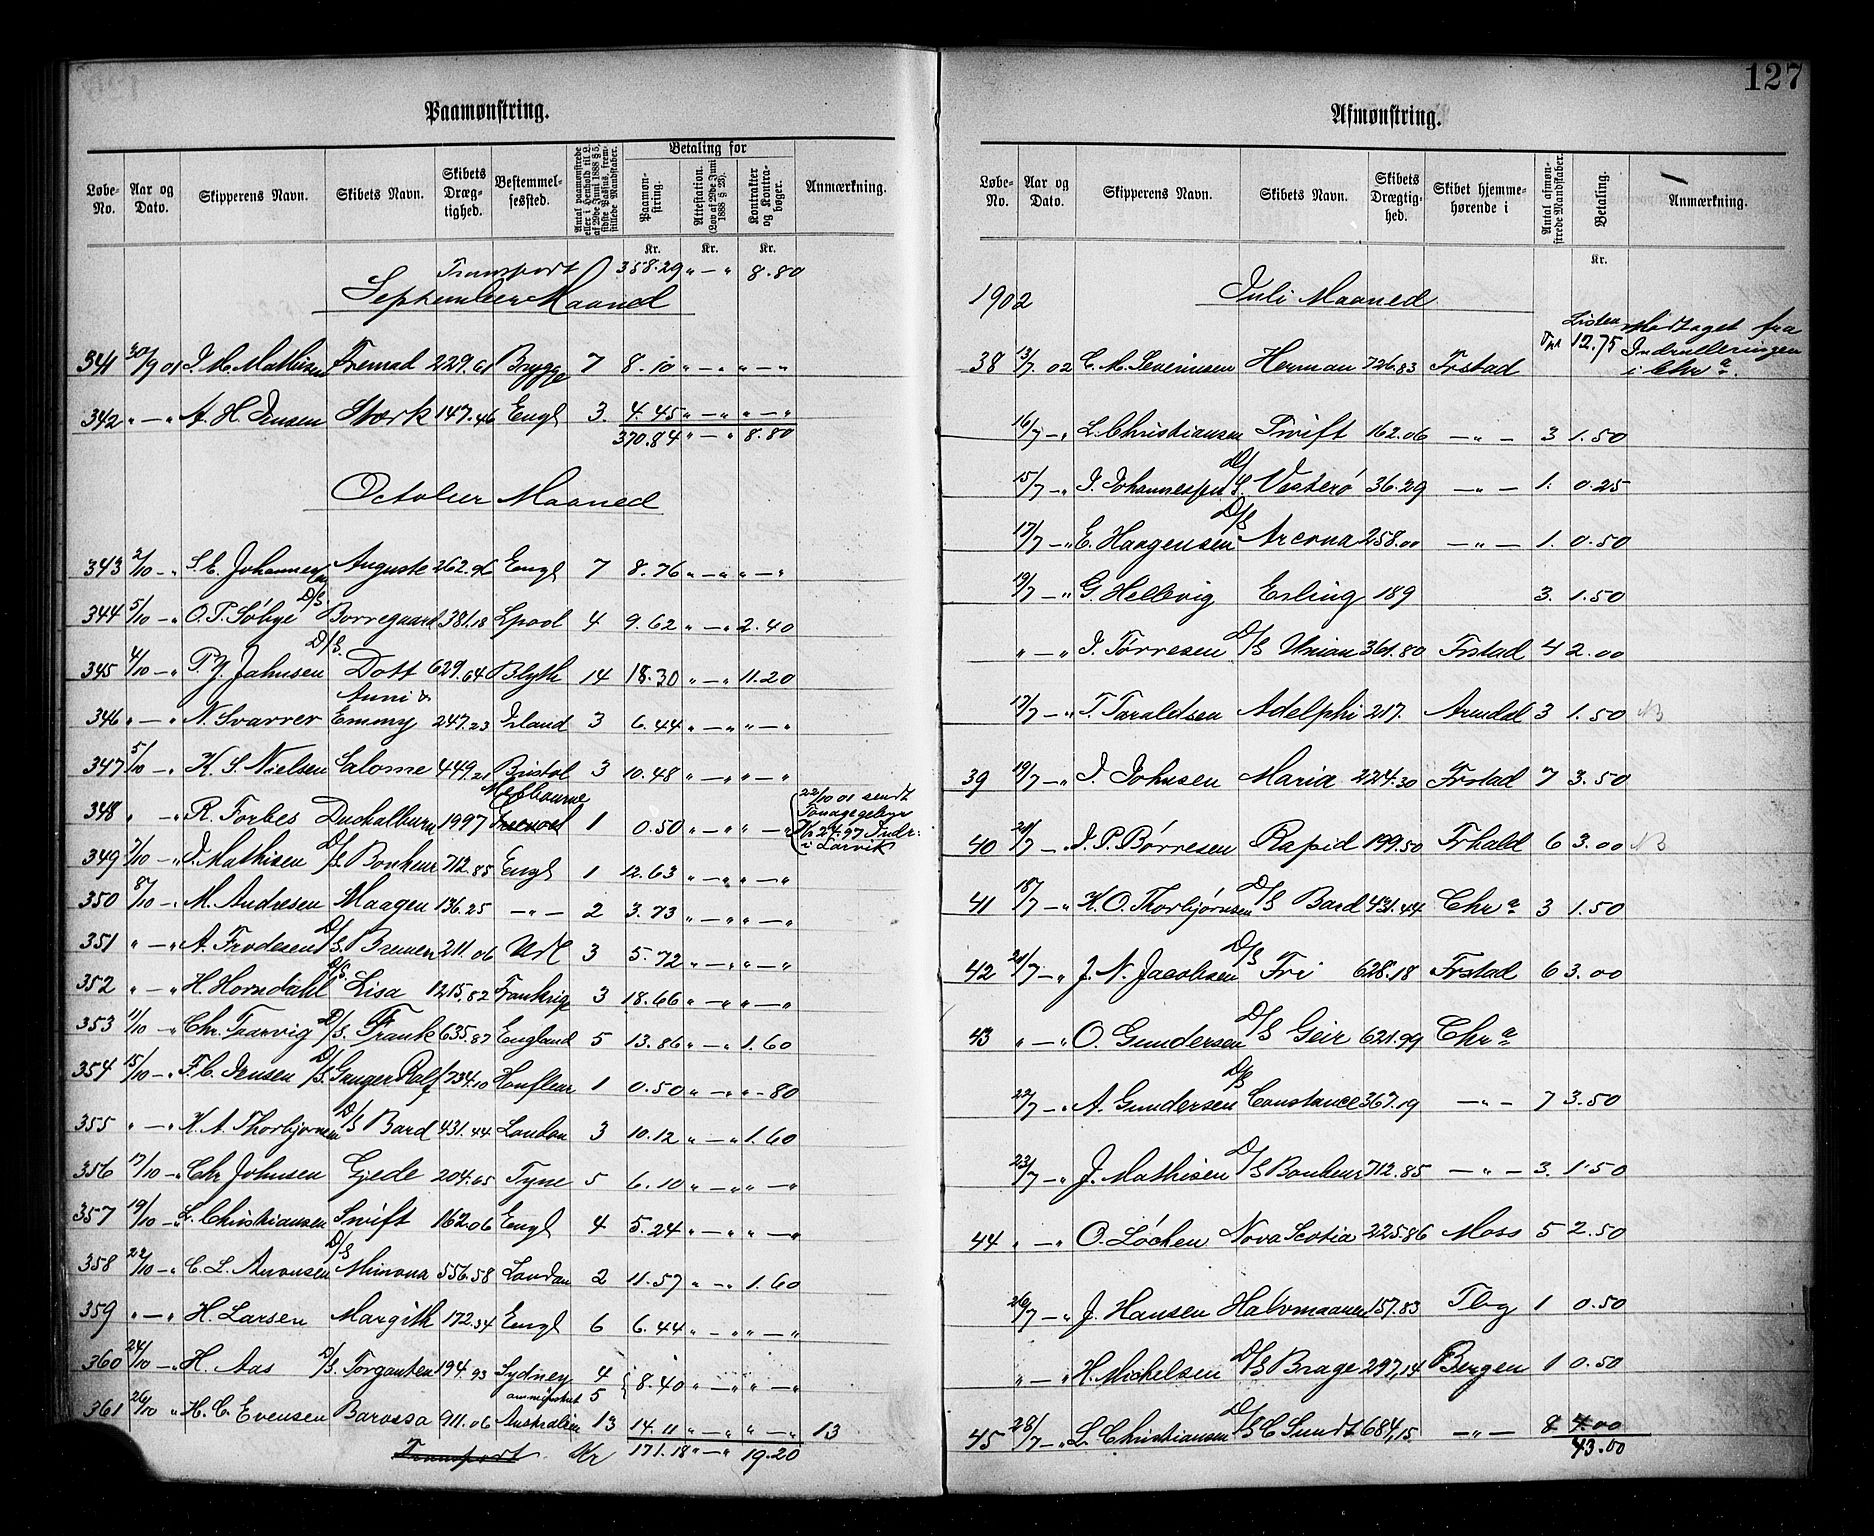 127
Paamønstring.
Løbe-No. Aar og Dato. Skipperens Navn. Skibets Navn. Skibets Dræg-tighed. Bestemmel-sessted. Betaling for Paamøn-string. Attestation. (Lov af 29de Juni 1888 § 23). Kontrakter og Kontra-bøger. Anmærkning.
Kr. Kr. Kr.
Transport 358.29 " — " 8.80
September Maaned
341 30/9 01 Fremad 229.61 Brygge 7 8.10 " — " " — "
342 " — " A. H. Jensen Stærk 147.46 Engl 3. 4.45 " — " " — "
370.84 " — " 8.80
October Maaned
343 2/10 — " S. E. Johannesen Auguste 262.96 Engl 7 8.76 " — " " — "
344 5/10 — " O. P. Søbye D/S. Borregaard 381.18 Lpool 4 9.62 " — " 2.40
345 4/10 — " P. J. Jahnsen D/S. Dott 629.64 Blyth 14 18.30 " — " 11.20
346 " — " N. Svarrer Anni & Emmy 247.23 Irland 3 6.44 " — " " — "
347 5/10 — " K. S. Nielsen Salome 449.21 Bristol 3 10.48 " — " " — "
348 " — " R. Forbes 1997 Melbourne 1 0.50 " — " " — " 22/10 01 sendt Tonagegebyr i Larvik
349 7/10 — " J. Mathisen D/S Bonheur 712.85 Engl 1 12.63 " — " " — "
350 8/10 — " M. Andresen Maagen 136.25 — " — 2 3.73 " — " " — "
351 " — " A. Frodesen D/S. Bremen 211.06 3 5.72 " — " " — "
352 " — " H. Horndahl D/S. Lisa 1215.82 Frankrige 3 18.66 " — " " — "
353 11/10 — " Chr. Taarvig D/S. Frank 635.87 England 5 13.86 " — " 1.60
354 15/10 — " F. C. Jensen D/S. Ganger Rolf 734.10 Honfleur 1 0.50 " — " " - 80
355 " — " K. A. Thorbjørnsen D/S Bard 431.44 London 3 10.12 " — " 1.60
356 17/10 — " Chr Johnsen Gjede 204.65 Tyne 5 6.10 " — " " — "
357 19/10 — " L. Christiansen Swift 162.06 Engl 4 5.24 " — " " — "
358 22/10 — " C. L. Aronsen D/S Minona 556.58 London 2 11.57 " — " 1.60
359 " — " H. Larsen Margith 172.54 Engl 6 6.44 " — " " — "
360 24/10 — " H. Aas D/S. Torgauten 194.93 Sydney 4 8.40 " — " " — "
5
361 26/10 " H. C. Evensen Barossa 911.06 Australien 13 14.11 " — " " — " 13
Transport Kr 171.18 " — " 19.20
Afmønstring.
Løbe-No. Aar og Dato. Skipperens Navn. Skibets Navn. Skibets Drægtig-hed. Skibet hjemme-hørende i Antal afmøn-strede Mandskaber. Betaling. Anmærkning.
Kr.
1902 Juli Maaned
38 13/7 02 C. M. Severinsen Herman 726.83 Frstad Tpt 12.75 Listen Modtaget fra Indrulleringen i Chr a.
16/7 — " L. Christiansen Swift 162.06 — " — 3 1.50
15/7 — " J. Johannessen D/S. Vesterø 36.29 — " — 1. 0.25
17/7 — " E. Haagensen D/S Arcona 258.00 — " — 1. 0.50
19/7 — " G. Hellevig Erling 189 3. 1.50
" — " J. Tørresen D/S Union 361.80 Frstad 4 2.00
17/7 — " T. Taraldsen Adelphi 217. Arendal 3 1.50 NB
39 19/7 — " J. Johnsen Maria 224.30 Frstad 7 3.50
40 21/7 — " J. P. Børresen Rapid 199.50 Frhald 6 3.00 NB
41 18/7 — " K. O. Thorbjørnsen D/S Bard 431.44 Chr a 3 1.50
42 21/7 — " J. N. Jacobsen D/S Fri 628.18 Frstad 6 3.00
43 " — " O. Gundersen D/S Geir 621.99 Chr a
22/7 — " A. Gundersen D/S Constance 367.19 — " — 7 3.50
23/7 — " J. Mathisen D/S Bonheur 712.85 — " — 3. 1.50
44 " — " O. Løchen Nova Scotia 225.86 Moss 5 2.50
26/7 — " J. Hansen Halvmaanen 157.83 Tbg 1 0.50
" — " H. Mickelsen D/S Brage 297,14 Bergen 1 0.50
45 28/7 — " L. Christiansen D/S C Sundt 684,15 — " — 8 4.00
43.00